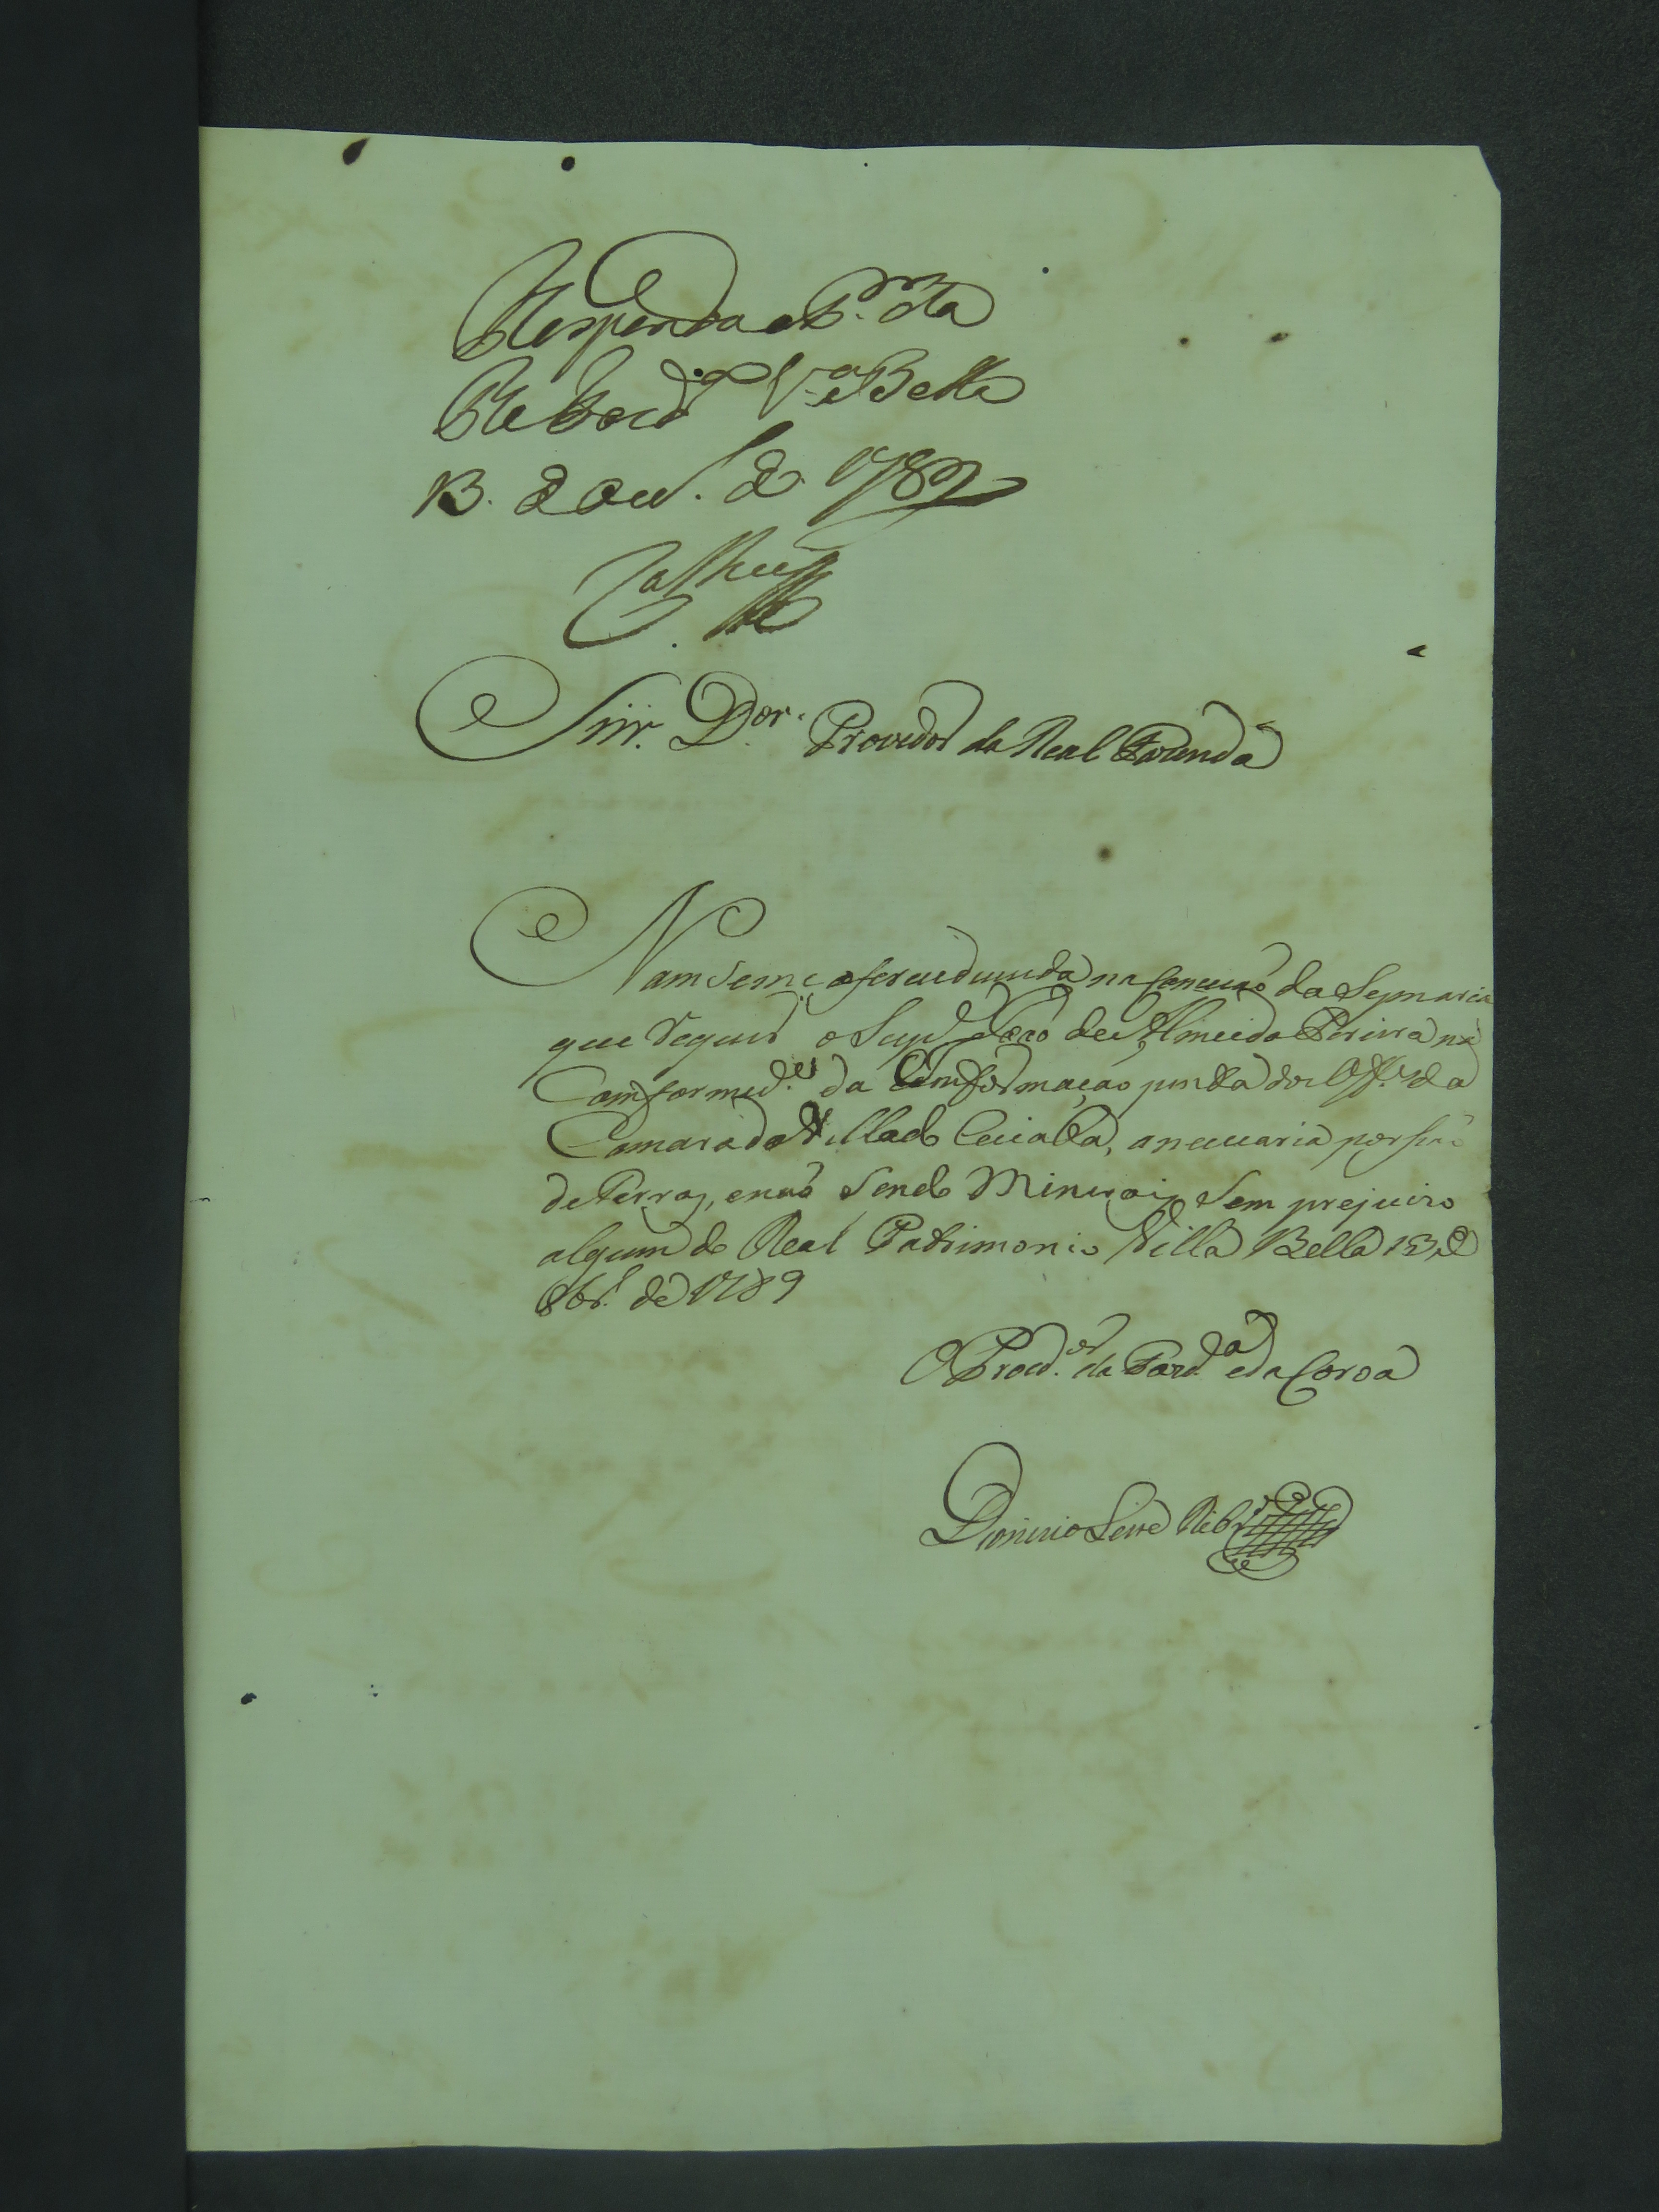 Responda o P.or da
Re Fazd.a V.a Bella
13. de Out. de 1789
Snr. D.or Provedor da Real Fazenda
Nam se me oferece duvida na Concecaõ da Sesmaria
que Requer o Sup.e João de Almeida Pereira na
Comformid.e da Emformaçaõ junta dos Off.es da
Camara da Villa do Cuiabá, a nececaria porsaõ
de Terras, e naõ sendo Minerais, sem prejuizo
algum do Real Patrimonio Villa Bella 13 de
8br.o de 1789
O Procd.or da Fazd.a e da Coroa
Dionizio Leite Ribr.o